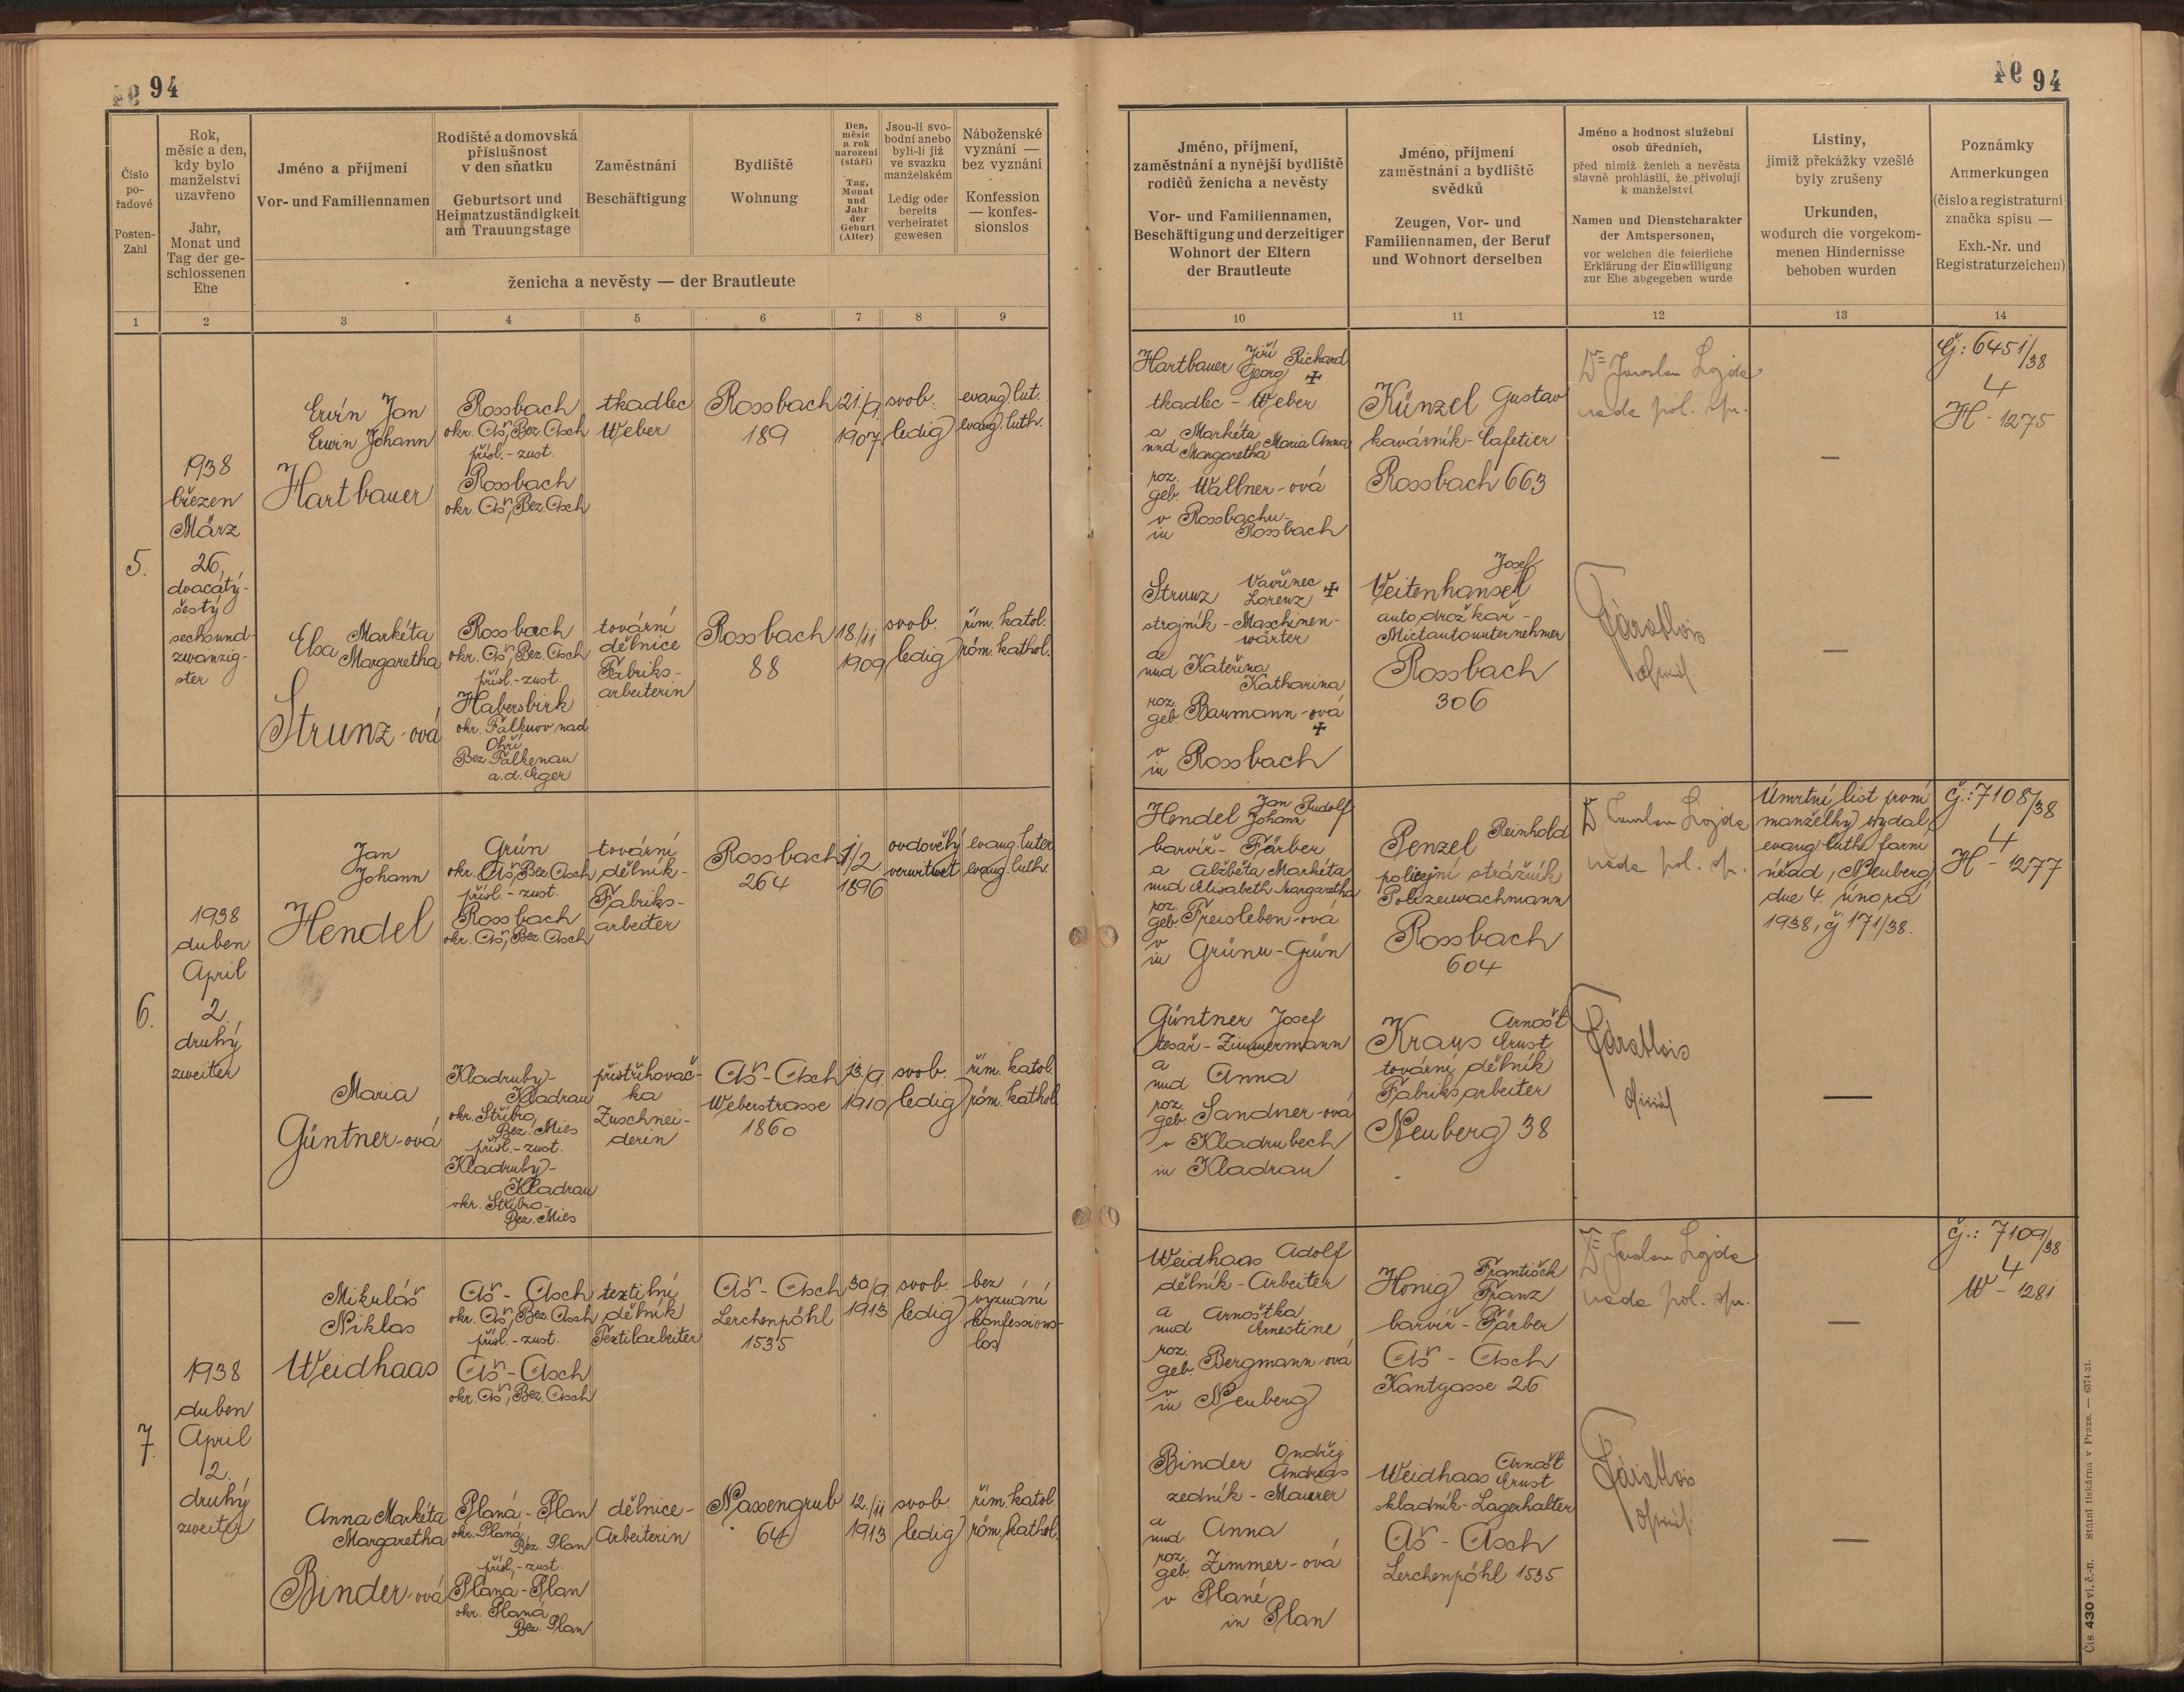 94
94
Číslo pořadové
Posten-Zahl
Rok, měsíc a den, kdy bylo manželství uzavřeno
Jahr, Monat und Tag der geschlossenen Ehe
Jméno a přijmení
Vor- und Familiennamen
Rodiště a domovská příslušnost v den sňatku
Geburtsort und Heimatzuständigkeit am Trauungstage
Zaměstnání
Beschäftigung
Bydliště
Wohnung
Den, měsíc a rok narození (stáří)
Tag, Monat und Jahr der Geburt (Alter)
Jsou-li svobodní anebo byli-li již ve svazku manželském
Ledig oder bereits verheiratet gewesen
Náboženské vyznání — bez vyznání
Konfession — konfessionslos
ženicha a nevěsty — der Brautleute
Jméno, přijmení, zaměstnání a nynější bydliště rodičů ženicha a nevěsty
Vor- und Familiennamen, Beschäftigung und derzeitiger Wohnort der Eltern der Brautleute
Jméno, přijmení zaměstnání a bydliště svědků
Zeugen, Vor- und Familiennamen, der Beruf und Wohnort derselben
Jméno a hodnost služební osob úředních,
před nimiž ženich a nevěsta slavně prohlásili, že přivolují k manželství
Namen und Dienstcharakter der Amtspersonen,
vor welchen die feierliche Erklärung der Einwilligung zur Ehe abgegeben wurde
Listiny, jimiž překážky vzešlé byly zrušeny
Urkunden, wodurch die vorgekommenen Hindernisse behoben wurden
Poznámky
Anmerkungen
(číslo a registraturní značka spisu —
Exh.-Nr. und Registraturzeichen)
1 2 3 4 5 6 7 8 9 10 11 12 13 14
5.
1938
březen
März
26.
dvacátý-
šestý
sechsund-
zwanzig-
ster
Ervín Jan
Erwin Johann
Hartbauer
Rossbach
okr. Aš, Bez. Asch
přísl. - zust.
Rossbach
okr. Aš, Bez. Asch
tkadlec
Weber
Rossbach
189
21/9.
1907
svob.
ledig
evang. lut.
evang. luth.
Elsa Markéta
Margaretha
Strunz-ová
Rossbach
okr. Aš, Bez. Asch
přísl. - zust.
Habersbirk
okr. Falknov nad
Ohří
Bez. Falkenau
a.d. Eger
tovární
dělnice
Fabriks-
arbeiterin
Rossbach
88
18/11
1909
svob.
ledig
řím. katol.
röm. kathol.
Hartbauer Jiří Richard
Georg ✝
tkadlec - Weber
a Markéta Maria Anna
und Margaretha
roz.
geb. Wallner-ová
v Rossbachu-
in Rossbach
Künzel Gustav
kavárník - Cafetier
Rossbach 663
Dr Jaroslav Lojda
rada pol. spr.
—
Č: 6451/38
4
H - 1275
Strunz Vavřinec
Lorenz ✝
strojník - Maschinen-
wärter
a
und Kateřina
Katharina
roz.
geb. Baumann-ová
✝
v
in Rossbach
Josef
Veitenhansel
autodrožkař -
Mietautounternehmer
Rossbach
306
—
6.
1938
duben
April
2.
druhý
zweiter
Jan
Johann
Hendel
Grün
okr. Aš, Bez. Asch
přísl. - zust.
Rossbach
okr. Aš, Bez. Asch
tovární
dělník -
Fabriks-
arbeiter
Rossbach
264
1/2.
1896
ovdovělý
verwitwet
evang. luter
evang. luth.
Maria
Güntner-ová
Kladruby-
Kladrau
okr. Stříbro,
Bez. Mies
přísl. - zust.
Kladruby-
Kladrau
okr. Stříbro-
Bez. Mies
přistřihovač-
ka
Zuschnei-
derin
Aš - Asch
Weberstrasse
1860
23./9.
1910
svob.
ledig
řím. katol.
röm. kathol.
Hendel Jan Rudolf
Johann
barvíř - Färber
a Alžběta Markéta
und Elisabeth Margaretha
roz.
geb. Freisleben-ová
v
in Grünu-Grün
Penzel Reinhold
policejní strážník
Polizeiwachmann
Rossbach
604
Dr Jaroslav Lojda
rada pol. spr.
Úmrtní list první
manželky vydal
evang. luthe farní
úřad, Neuberg
dne 4. února
1938, č 171/38.
Č.: 7108/38
4
H - 1277
Güntner Josef
tesař - Zimmermann
a
und Anna
roz.
geb. Sandner-ová
v Kladrubech
in Kladrau
Kraus Arnošt
Ernst
tovární dělník
Fabriksarbeiter
Neuberg 38
—
7.
1938
duben
April
2.
druhý
zweiter
Mikuláš
Niklas
Weidhaas
Aš - Asch
okr. Aš, Bez. Asch
přísl. - zust.
Aš - Asch
okr. Aš, Bez. Asch
textilní
dělník
Textilarbeiter
Aš - Asch
Lerchenpöhl
1535
30/9.
1913
svob.
ledig
bez
vyznání
konfessions-
los
Anna Markéta
Margaretha
Binder-ová
Planá - Plan
okr. Planá,
Bez. Plan
přísl. - zust.
Planá - Plan
okr. Planá
Bez. Plan
dělnice -
Arbeiterin
Nassengrub
64
12./11
1913
svob.
ledig
řím. katol.
röm. kathol.
Weidhaas Adolf
dělník - Arbeiter
a Arnoštka
und Ernestine
roz.
geb. Bergmann-ová
v
in Neuberg
Honig František
Franz
barvíř - Färber
Aš - Asch
Kantgasse 26
Dr Jaroslav Lojda
rada pol. spr.
—
Č.: 7109/38
4
W - 1281
Binder Ondřej
Andreas
zedník - Maurer
a
und Anna
roz.
geb. Zimmer-ová
v Plané
in Plan
Weidhaas Arnošt
Ernst
skladník - Lagerhalter
Aš - Asch
Lerchenpöhl 1535
—
Čís 430 vl. č.-n. Státní tiskárna v Praze. — 6374-31.